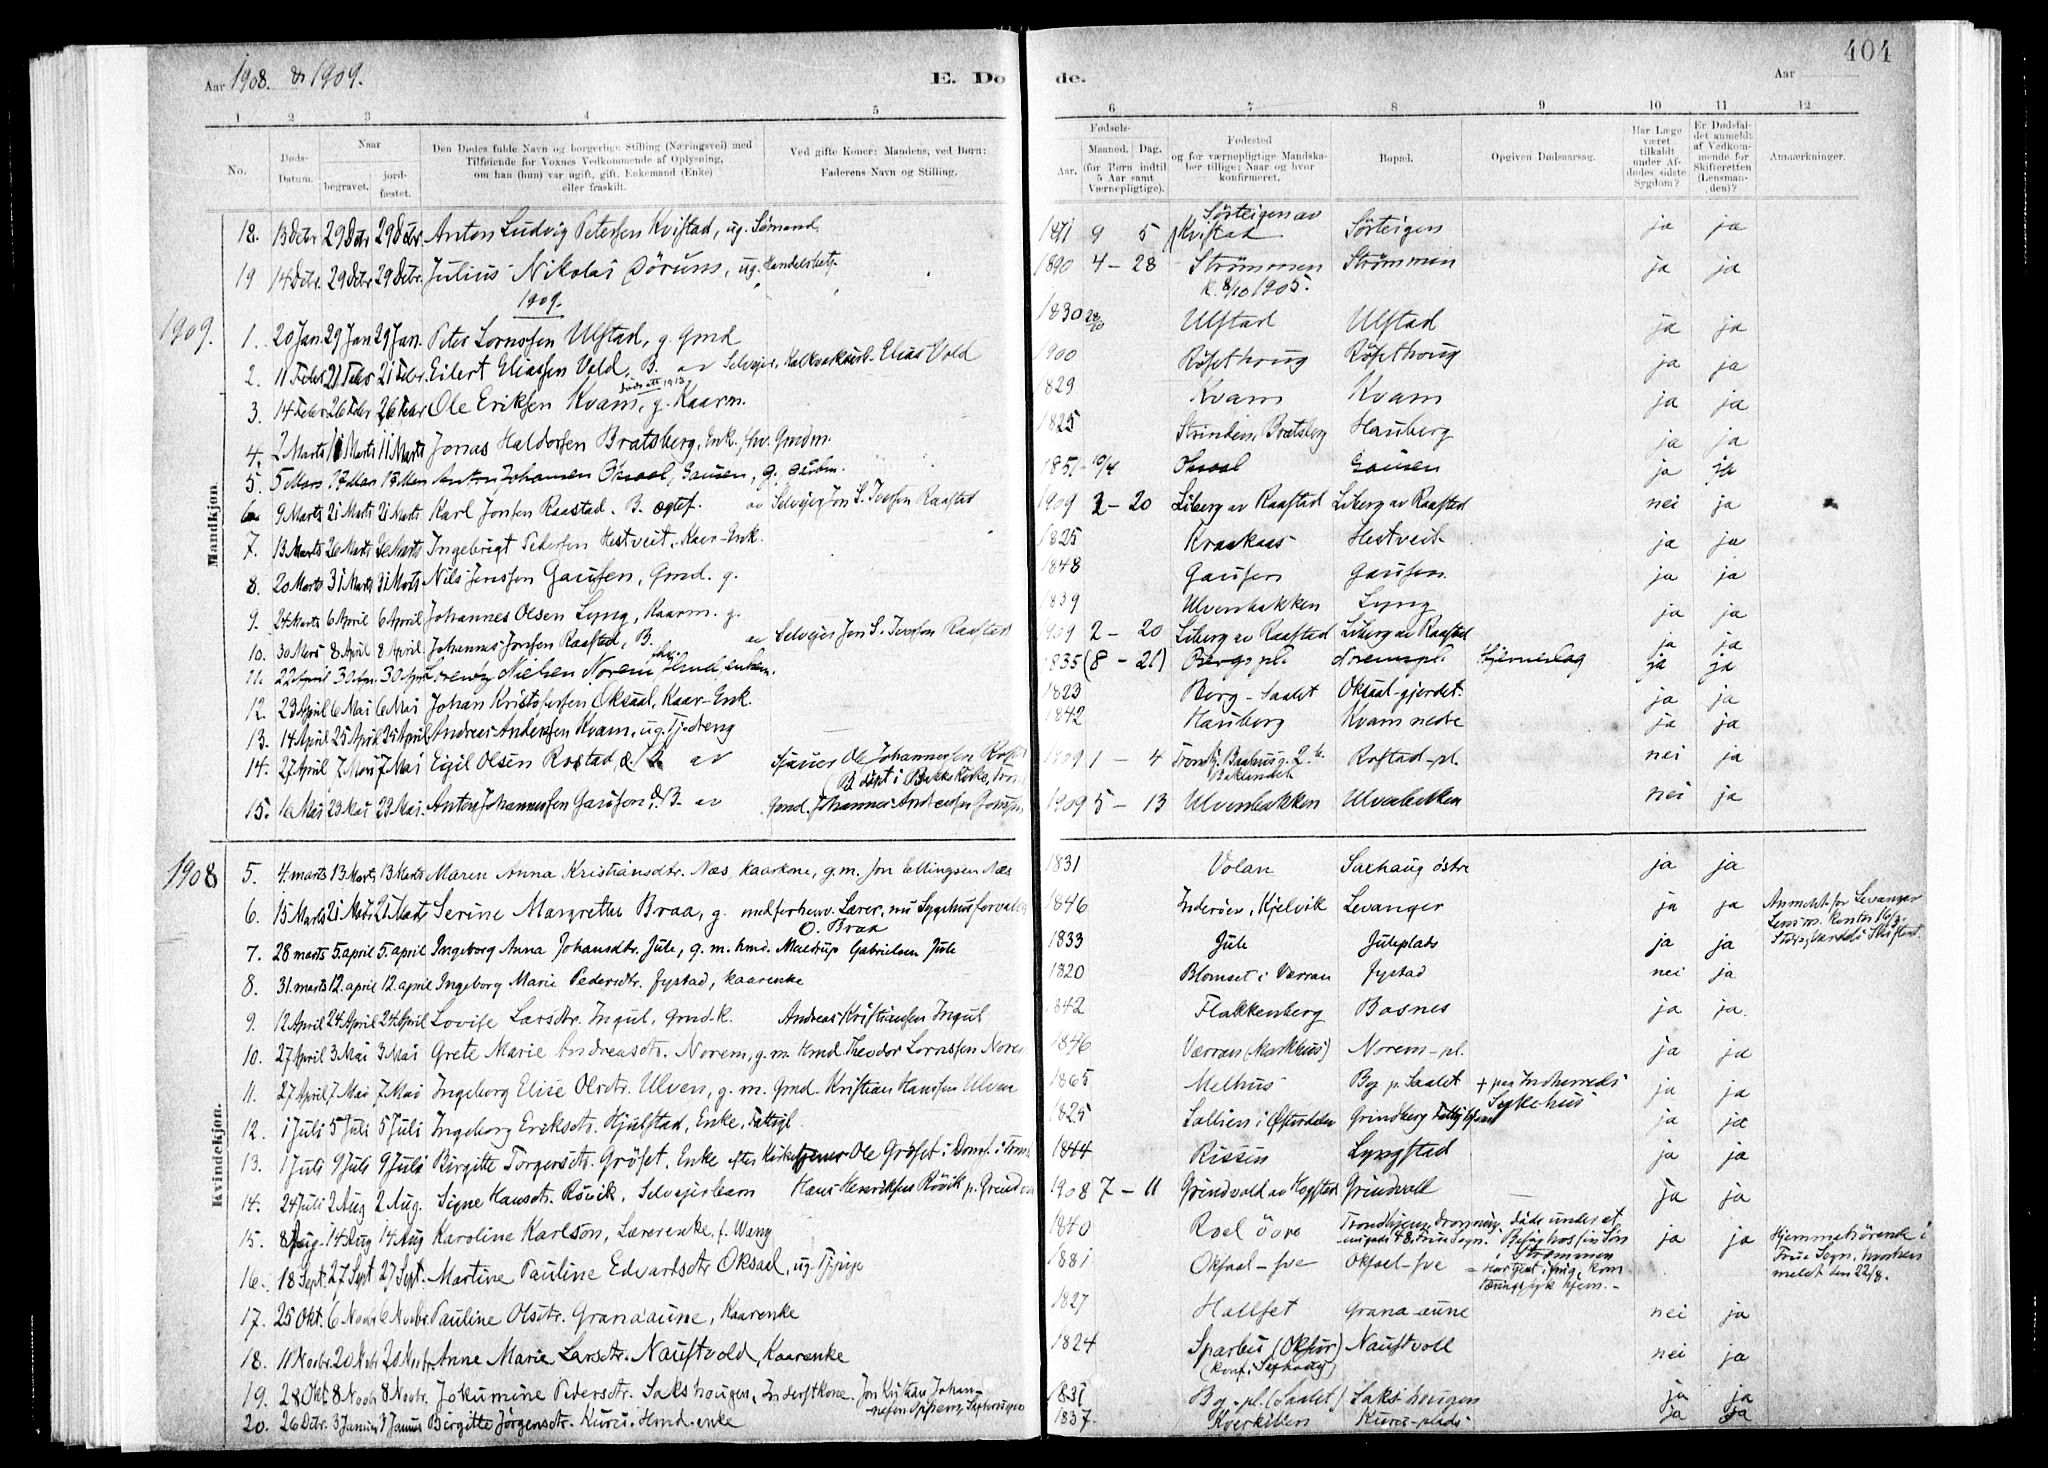 404
Aar 1908. & 1909.
E. Dø de.
Aar
1 2 3 4 5 6 7 8 9 10 11 12
No.
Døds-Datum.
Naar
begravet.
jord-fæstet.
Den Dødes fulde Navn og borgerlige Stilling (Næringsvei) med
Tilføiende for Voxnes Vedkommende af Oplysning,
om han (hun) var ugift, gift, Enkemand (Enke)
eller fraskilt.
Ved gifte Koner: Mandens, ved Børn:
Faderens Navn og Stilling.
Fødsels-
Aar. Maaned. Dag.
(for Børn indtil
5 Aar samt
Værnepligtige).
Fødested
og for værnepligtige Mandska-
ber tillige: Naar og hvor
konfirmeret.
Bopæl.
Opgiven Dødsaarsag.
Har Læge
været
tilkaldt
under Af-
dødes sidste
Sygdom?
Er Dødsfal-
det anmeldt
af Vedkom-
mende for
Skifteretten
(Lensman-
den)?
Anmærkninger.
Mandkjøn.
18. 13 Decbr 29 Decbr 29 Decbr. Anton Ludvig Petersen Kvistad, ug. Sømand, 1871 9 5 Sørteigen av Kvistad Sørteigen ja ja
19 14 Decbr. 29 Decbr 29 Decbr. Julius Nikolai Sørum, ug. Handelsbetj. 1890 4 - 28 Strømmen Strømmen ja ja
k. 8/10 1905.
1909.
1909.
1. 20 Jan. 29 Jan 29 Jan. Peter Lornssen Ulstad, g. Gmd 1830 28/10 Ulstad Ulstad ja ja
2. 11 Febr 21 Febr 21 Febr. Eilert Eliassen Vold, B. av Selveier, Kalkværksarb. Elias Vold 1900 Røsethoug Røsethoug ja ja
3. 14 Febr 26 Febr 26 Febr Ole Eriksen Kvam, g. Kaarm. 1829 Kvam Kvam ja ja
4. 2 Marts 11 Marts 11 Marts Jonas Haldorsen Bratsberg, Enk. fhv. Gmdm. 1825 Strinden, Bratsberg Hauberg ja ja
5. 5 Mars 17 Mars 17 Mars Anton Johansen Oksaal, Gausen, g. gaardm. 1851 - 10/4 Oksaal Gausen ja ja
6 9 Marts 21 Marts 21 Marts Karl Jonsen Raastad. B. ægtef. av Selveier Jon S. Iversen Raastad 1909 2 - 20 Liberg av Raastad Liberg av Raastad nei ja
7. 13 Marts 26 Marts 26 Marts Ingebrigt Pedersen Hestveit, Kaar-Enk. 1825 Kraakaas Hestveit ja ja
8. 20 Marts 31 Marts 31 Marts Nils Jenssen Gausen, Gmd. g. 1848 Gausen Gausen. ja ja
9. 24 Marts 6 April 6 April Johannes Olsen Lyng, Kaarm. g. 1839 Ulvenbakken Lyng ja ja
10. 30 Mars 8 April 8 April. Johannes Jonsen Raastad, B. av Selveier Jon S. Iversen Raastad 1909 2 - 20 Liberg av Raastad Liberg av Raastad ja ja
11. 22 April 30 Apr. 30 April Lorentz Nielsen Norem, fhv. Hmd, enkem. 1835 (8 - 21) Bergs pl. Norems pl. Hjerneslag ja ja
12. 23 April 6 Mai 6 Mai Johan Kristofersen Oksaal, Kaar-Enk. 1823 Berg - Saalet Oksaal-gjerdet. ja ja
13. 14 April 25 April 25 April Andreas Anderssen Kvam, ug. tjdreng 1842 Hauberg Kvam nedre ja ja
14. 27 April 7 Mai 7 Mai Eigil Olsen Rostad, B. av Ole Johannessen 1909 1 - 4 Trondhj. Bakkelandet Rostad-pl. nei ja
(B. døpt i Bakke Kirke,
15. 16 Mai 23 Mai 23 Mai. Anton Johannessen Gausen, B. av Gmd. Johannes Andersen 1909 5 - 13 Ulvenbakken Ulvenbakken nei ja
1908
Kvindekjøn.
5. 4. marts 13 Marts 13 Marts Maren Anna Kristiansdtr. Næs, kaarkone, g.m. Jon Ellingsen Næs 1831 Volan Saxhaug østre ja ja
6. 15 Marts 21 Marts 21 Marts Serine Margrethe Braa, g. med forhenv. Lærer, nu Sygehusforvalter O. Braa 1846 Inderøen, Kjelvik Levanger ja ja Anmeldt for Levanger
7. 28 marts 5. april 5. april Ingeborg Anna Johansdtr. Jule, g. m. hmd. Gabrielsen Jule 1833 Jule Juleplads ja ja
8. 31. marts 12. april 12. april Ingeborg Marie Pedersdtr. Jystad, kaarenke 1820 Blomset i Værran Jystad nei ja
9. 12 April 24 April 24 April Lovise Larsdtr. Ingul, Gmd.k. Andreas Kristiansen Ingul 1842 Flakkenberg Bosnes ja ja.
10. 27 April 3 Mai 3 Mai Grete Marie Andreasdtr. Norem, g. m. Hmd. Theodor Lornssen Norem 1846 Værran (Markhus) Norem-pl. ja ja
11. 27 April 7 Mai 7 Mai Ingeborg Elise Olsdtr. Ulven, g. m. Gmd. Kristian Hanssen Ulven 1865 Melhus By p. Saalet + paa Indherreds Sykehus ja ja
12. 1 Juli 5 Juli 5 Juli Ingeborg Eriksdtr. Hjulstad, Enke, Fattigl. 1825 Sollien i Østerdalen Grindberg ja ja
13. 1 Juli 9 Juli 9 Juli Birgitte Torgersdtr. Grøset, Enke efter Kirketjener Ole Grøset i Domk. i 1844 Rissen Lyngstad ja ja
14. 24 Juli 2 Aug 2 Aug. Signe Hansdtr. Røvik, Selveierbarn Hans Henriksen Røvik p. Grindvoll 1908 7 - 11 Grindvold av Hogstad Grindvoll — ja ja
15. 8 Aug. 14 Aug 14 Aug Karoline Karlson, Lærerenke, f. Wang 1840 Roel øvre ja ja Hjemmehørende i Frue Sogn,
meldt den 22/8.
16. 18 Sept. 27 Sept 27 Sept. Martine Pauline Edvardsdtr Oksaal, ug. Tjpige 1881 Oksaal-sve Oksaal-sve
17. 25 Okt. 6 Novbr 6 Novbr. Pauline Olsdtr. Granaaune, Kaarenke 1827 Hallset Grana-aune nei ja
18. 11 Novbr. 20 Novbr 20 Novbr Anne Marie Larsdtr. Naustvold, Kaarenke 1824 Sparbu Naustvoll nei ja
19. 28 Okt. 8 Novbr 8 Novbr. Jokumine Pedersdtr. Sakshougen, Inderstkone. Jon Kristian 1831 By-pl. (Saalet) Sakshougen ja ja
20. 26 Decbr. 3 Januar 3 Januar Birgitte Jørgensdtr. Kurei. Hmd-enke 1837. Kverkillen Kurei-plads ja ja